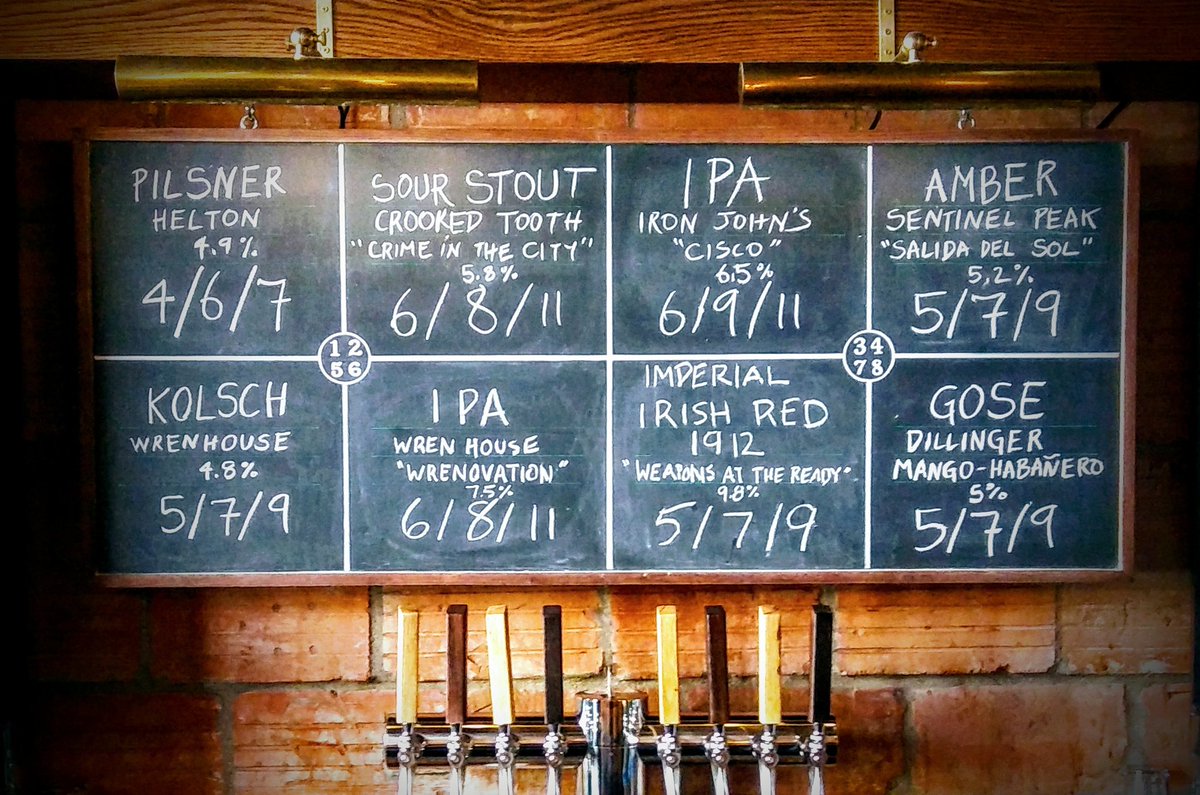 PILSNER
HELTON
4.9%
4/6/7
SOUR STOUT
CROOKED TOOTH
"CRIME IN THE CITY"
5.8%
6/8/11
IPA
IRON JOHN'S
"CISCO"
6.5%
6/9/11
AMBER
SENTINEL PEAK
"SALIDA DEL SOL"
5.2%
5/7/9
1 2
5 6
3 4
7 8
KOLSCH
WRENHOUSE
4.8%
5/7/9
IPA
WREN HOUSE
"WRENOVATION"
7.5%
6/8/11
IMPERIAL
IRISH RED
1912
"WEAPONS AT THE READY"
9.8%
5/7/9
GOSE
DILLINGER
MANGO-HABAÑERO
5%
5/7/9